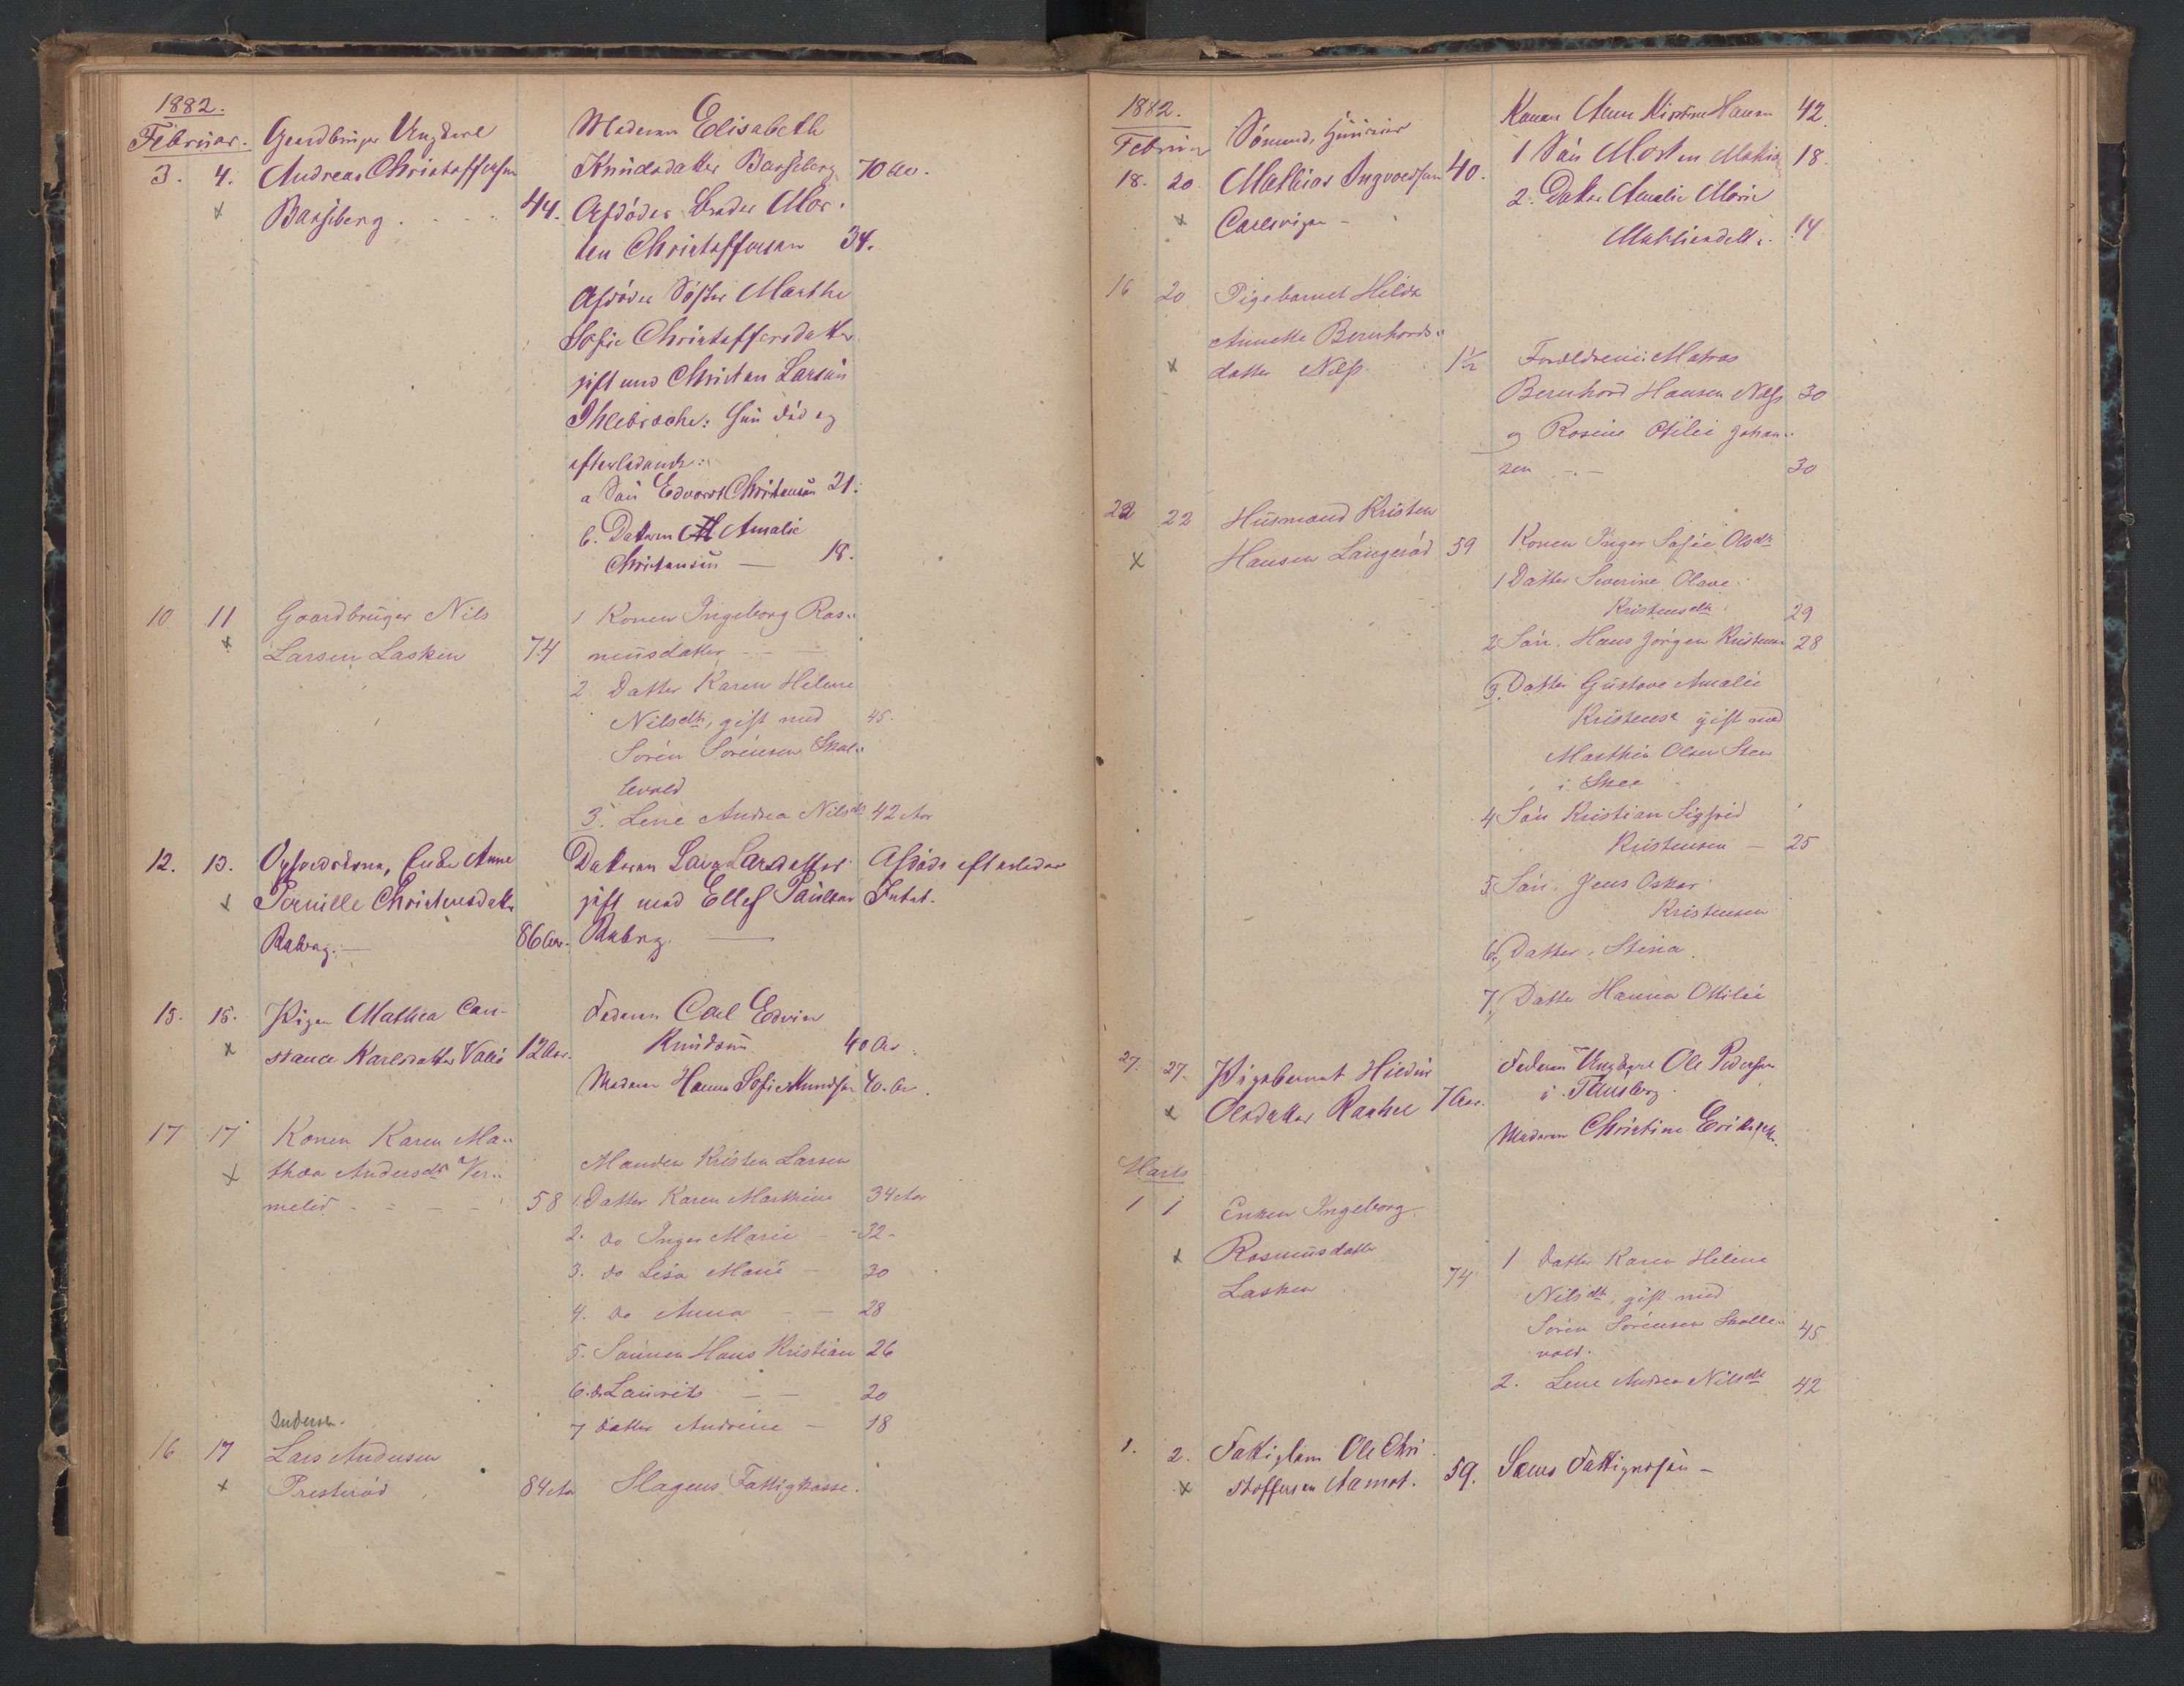 1882.
Februar. Gaardbruger Ungkarl Moderen Elisabeth
3. 4. Andreas Christoffersen Knudsdatter Basberg 70 Aar.
x Basberg . - - . 44. Afdøde Broder Mor-
ten Christoffersen 34.
Afdøde Søster Marthe
Sofie Christoffersdatter
gift med Christen Larsen
: hun død og
efterladende:
a Søn Edvard Christensen 21.
b. Datteren Amalie
Christensen — 18.
10 11 Gaardbruger Nils 1 Konen Ingeborg Ras-
x Larsen Laskin 74 musdatter - - -
2 Datter Karen Helene
Nilsdtr, gift med 45.
Søren Sørensen Skal-
levold
3. Lene Andrea Nilsdtr 42 Aar
12. 13. Enke Anne Datteren Larsdatter Afdøde efterlader
x Pernille Christensdatter gift med Ellef Paulsen Intet.
Raberg. — 86 Aar. Raberg. —
15. 15. Pigen Mathea Con- Faderen Carl Edvin
x stance Karlsdatter Vallø 12 Aar. Knudsen 40 Aar.
Moderen Hanna Sofie 40. Aar.
17 17 Konen Karen Ma-
x thea Andersdtr Ver- Manden Kristen Larsen
melid - = - - 58 1. Datter Karen Marthine 34 Aar
2. do Inger Marie - - 32 -
3. do Lisa Marie - 30
4. do Anna - - 28
5. Sønnen Hans Kristian 26
6. do Laurits - - 20
Andersen. 7 Datter Andrine - 18
16 17 Lars Andersen
x Presterød 84 Aar Slagens Fattigkasse.
1882.
Februar Sømand, Konen Anne Kirstine Hansen 42
18. 20. Mathias Ingvoldsen 40. 1 Søn Morten Mathias 18.
x Carlsvigen - 2. Datter Amalie Marie
Mathiasdtr. 14
16 20 Pigebarnet Hilda
Annette Bernhards-
x datter Næss 1½ Forældrene: Matros
Bernhard Hansen Næss 30
og Rosine Otilie Johan-
sen - - 30
22 22 Husmand Kristen
x Hansen Langerød 59 Konen Inger Sofie Olsdtr
1 Datter Severine Olave
Kristensdtr 29
2 Søn. Hans Jørgen Kristensen 28
3. Datter Gustave Amalie
Kristensd gift med
Marthin Olsen Steen
i Skee
4 Søn Kristian Sigfrid
Kristensen - 25
5 Søn. Jens Oskar
Kristensen
6, Datter, Stina
7, Datter Hanna Ottilie
27. 27. Pigebarnet Hildine Faderen Ungkarl Ole Pedersen
x Olsdatter 7 Aar. i Tønsberg
Moderen Christine Eriksdtr.
Marts
1 1 Enken Ingeborg
x Rasmusdatter 1 Datter Karen Helene
Lasken 74 Nilsdtr, gift med
Søren Sørensen Skalle- 45
vold.
2. Lene Andrea Nilsdtr 42
1. 2. Fattiglem Ole Chri-
x stoffersen Aamot. 59. Sems Fattigvæsen -